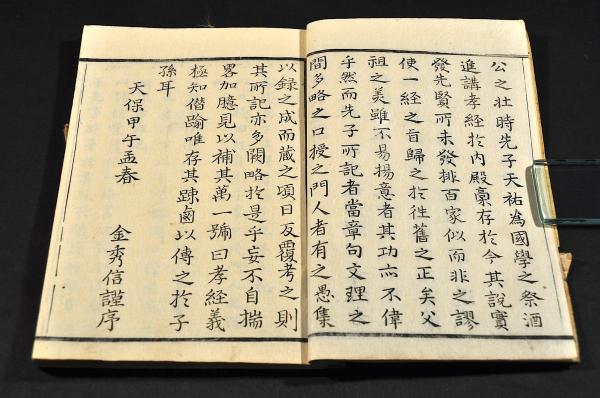 公之壮時先子天祐為國學之祭酒
進講孝經於内殿稾存於今其説實
發先賢所未發排百家似而非之謬
使一經之旨歸之於徃舊之正矣父
祖之美雖不易揚意者其功亦不偉
乎然而先子所記者當章句文理之
間多略之口授之門人者有之愚集
以録之成而蔵之頃日反覆考之則
其所記亦多闕略於是乎妄不自揣
畧加臆見以補其萬一號曰孝經義
極知僭踰唯存其踈鹵以傳之於子
孫耳
天保甲午孟春
金秀信謹序